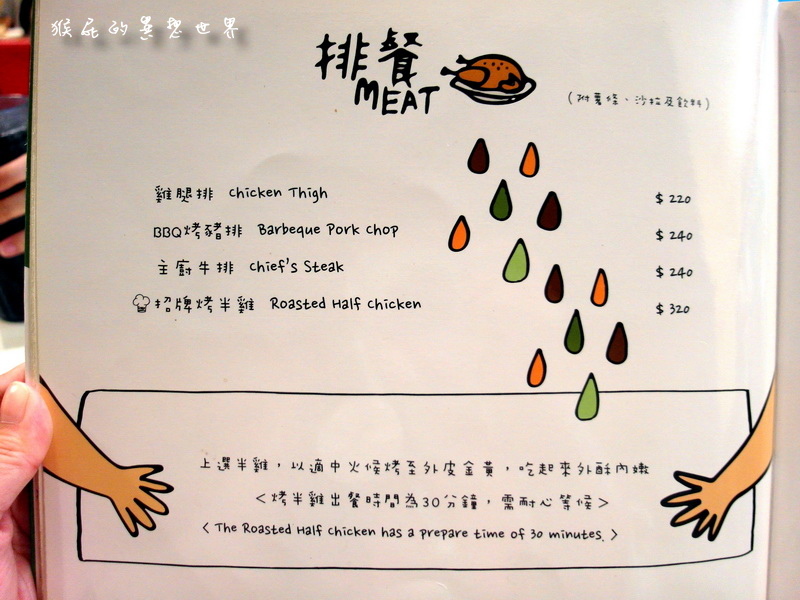 猴屁的異想世界
排餐
MEAT
(附薯條、沙拉及飲料)
雞腿排 Chicken Thigh $ 220
BBQ烤豬排 Barbeque Pork Chop $ 240
主廚牛排 Chief's Steak $ 240
招牌烤半雞 Roasted Half Chicken $ 320
上選半雞，以適中火候烤至外皮金黃，吃起來外酥內嫩
<烤半雞出餐時間為30分鐘，需耐心等候>
< The Roasted Half Chicken has a prepare time of 30 minutes. >